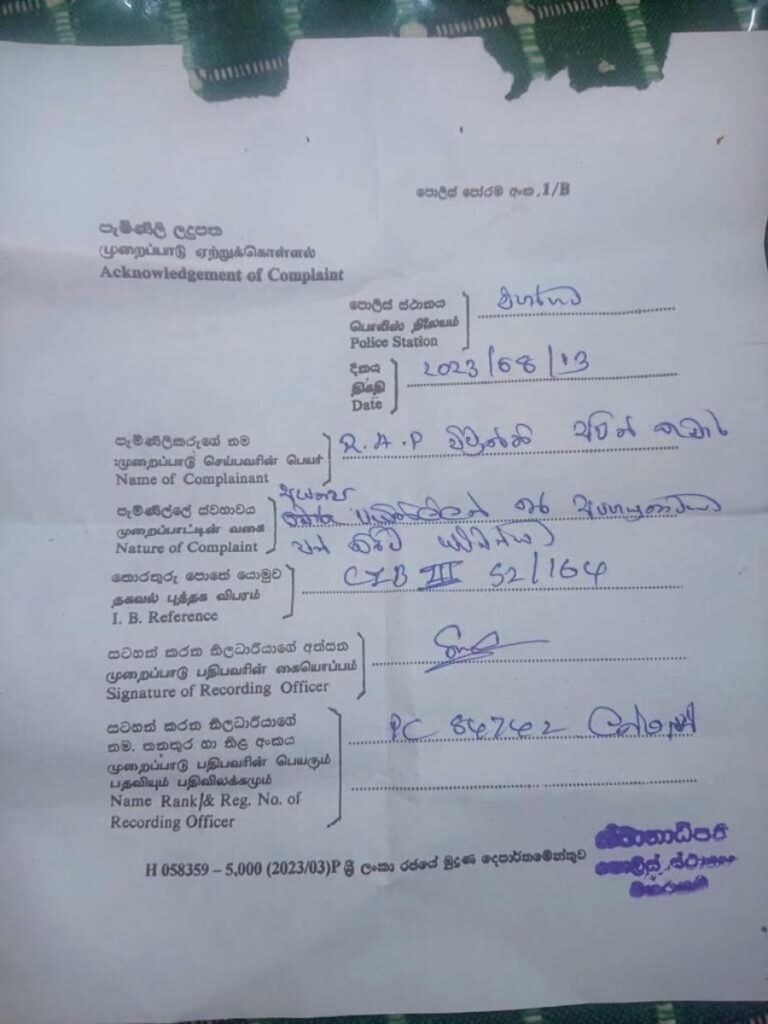 පොලිස් පෝරම අංක. 1/B
පැමිණිලි ලදුපත
முறைப்பாடு ஏற்றுக்கொள்ளல்
Acknowledgement of Complaint
පොලිස් ස්ථානය
பொலிஸ் நிலையம்
Police Station
දිනය
திகதி
Date
2023/08/13
පැමිණිලිකරුගේ නම
முறைப்பாடு செய்பவரின் பெயர்
Name of Complainant
R.A.P
පැමිණිල්ලේ ස්වභාවය
முறைப்பாட்டின் வகை
Nature of Complaint
තොරතුරු පොතේ යොමුව
தகவல் புத்தக விபரம்
I. B. Reference
CIB III 52/164
සටහන් කරන නිලධාරියාගේ අත්සන
முறைப்பாடு பதிபவரின் கையொப்பம்
Signature of Recording Officer
සටහන් කරන නිලධාරියාගේ
නම, තනතුර හා නිල අංකය
முறைப்பாடு பதிபவரின் பெயரும்
பதவியும் பதிவிலக்கமும்
Name Rank/& Reg. No. of
Recording Officer
PC 84742
H 058359 – 5,000 (2023/03)P ශ්‍රී ලංකා රජයේ මුද්‍රණ දෙපාර්තමේන්තුව
ස්ථානාධිපති
පොලිස් ස්ථානය